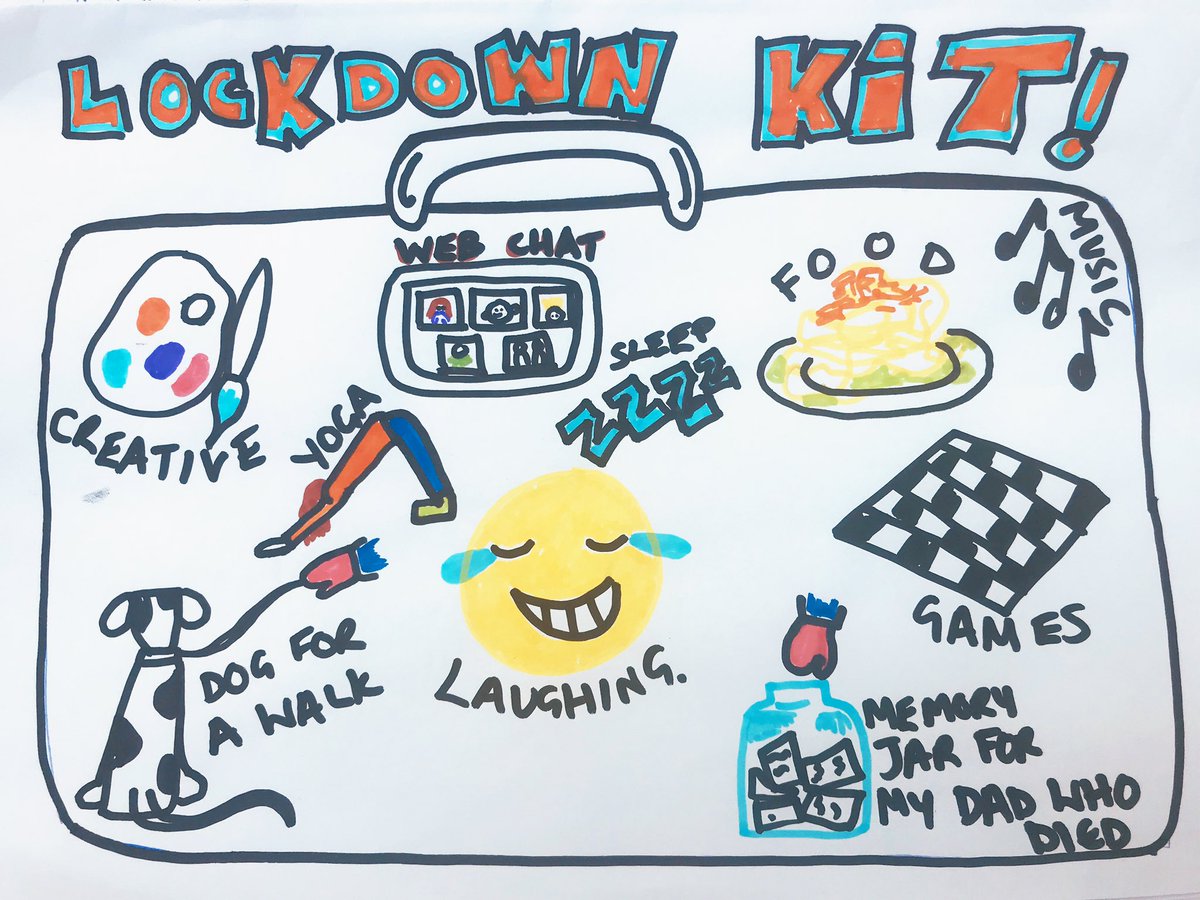 LOCKDOWN KiT!
WEB CHAT
FOOD
MUSIC
SLEEP
ZZZZ
CREATIVE
YOGA
GAMES
DOG FOR
A WALK
LAUGHING.
MEMORY
JAR FOR
MY DAD WHO
DIED